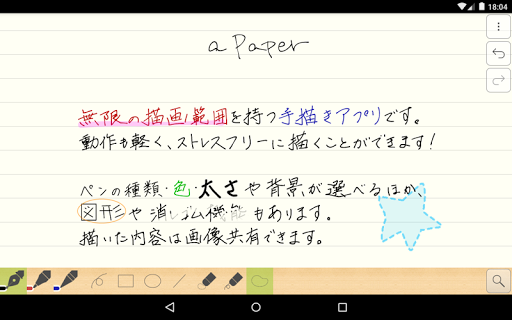 18:04
a Paper
無限の描画範囲を持つ手描きアプリです。
動作も軽く、ストレスフリーに描くことができます!
ペンの種類・色・太さや背景が選べるほか、
図形や消しゴム機能もあります。
描いた内容は画像共有できます。